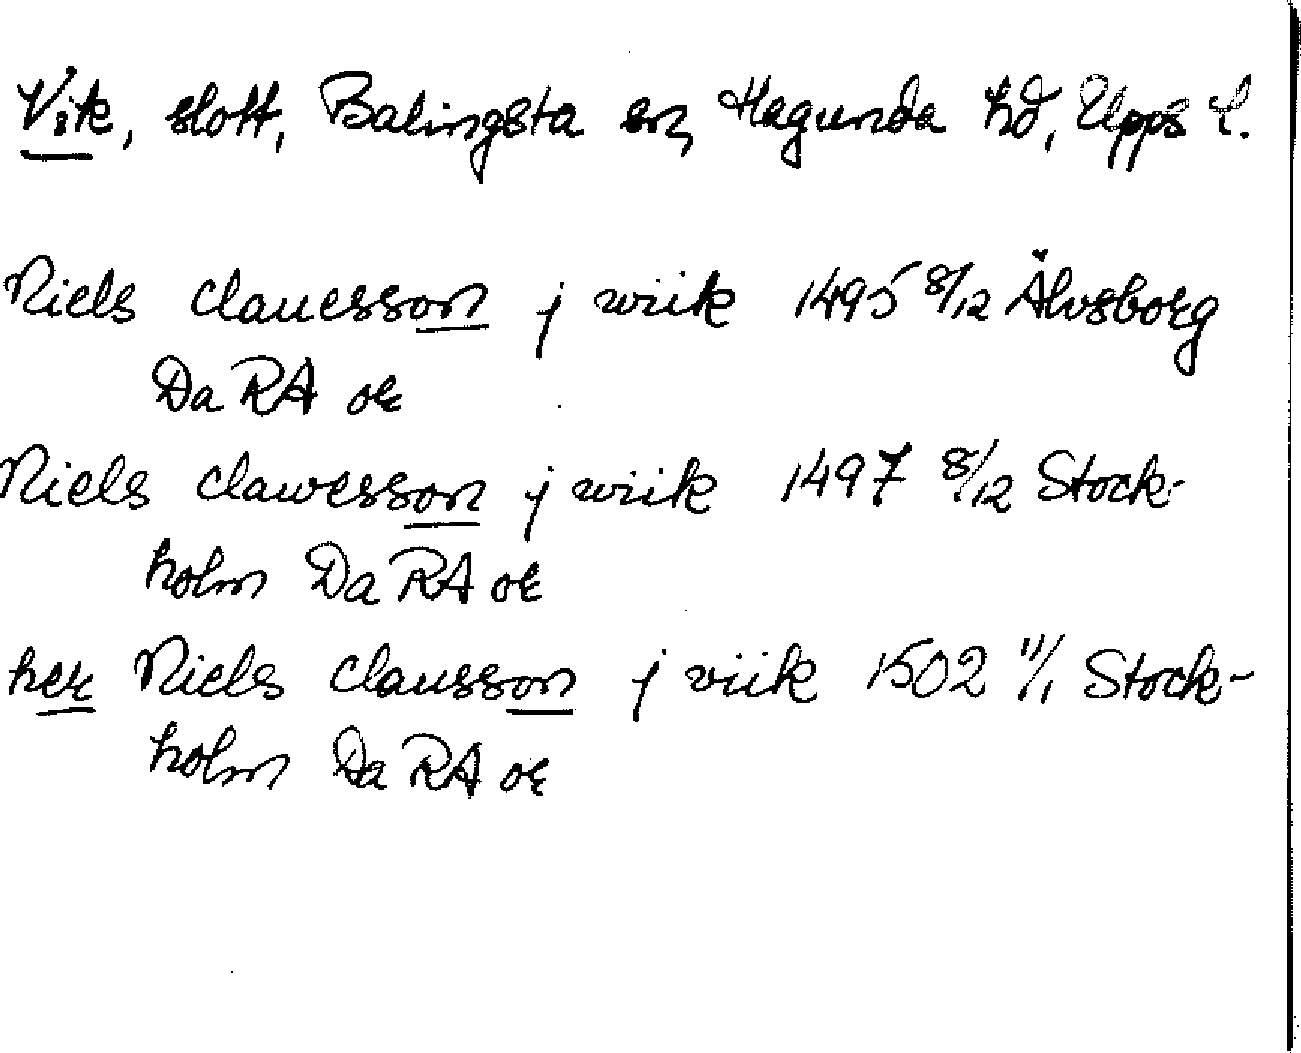 Vik, slott, Balingsta sn, Hagunda hd, Upps l.
Niels clauesson j wiik 1495 8/12 Älvsborg
Da RA or
Niels clawesson j wiik 1497 8/12 Stock-
holm Da RA or
her Niels clausson j viik 1502 11/1 Stock-
holm Da RA or